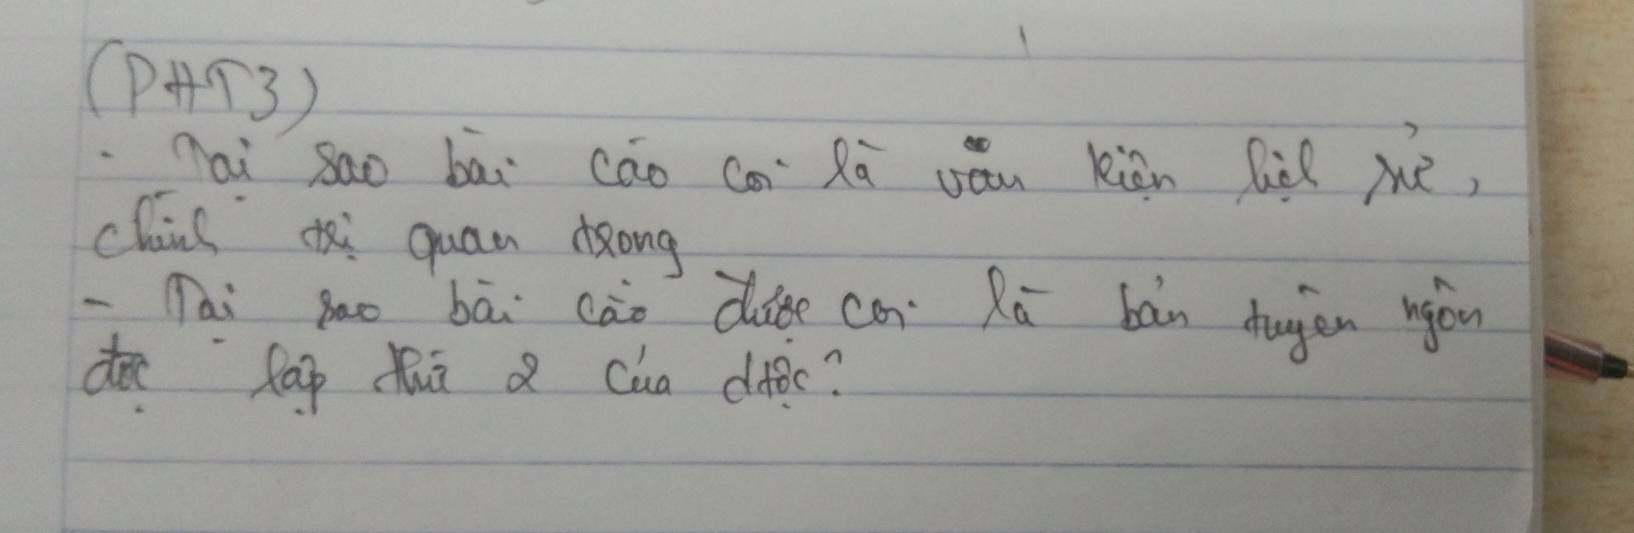 (PHT3)
- Tại sao bài cáo coi là văn kiện lịch sử,
chính trị quan trọng
- Tại sao bài cáo được coi là bản tuyên ngôn
độc lập thứ 2 của dtộc?